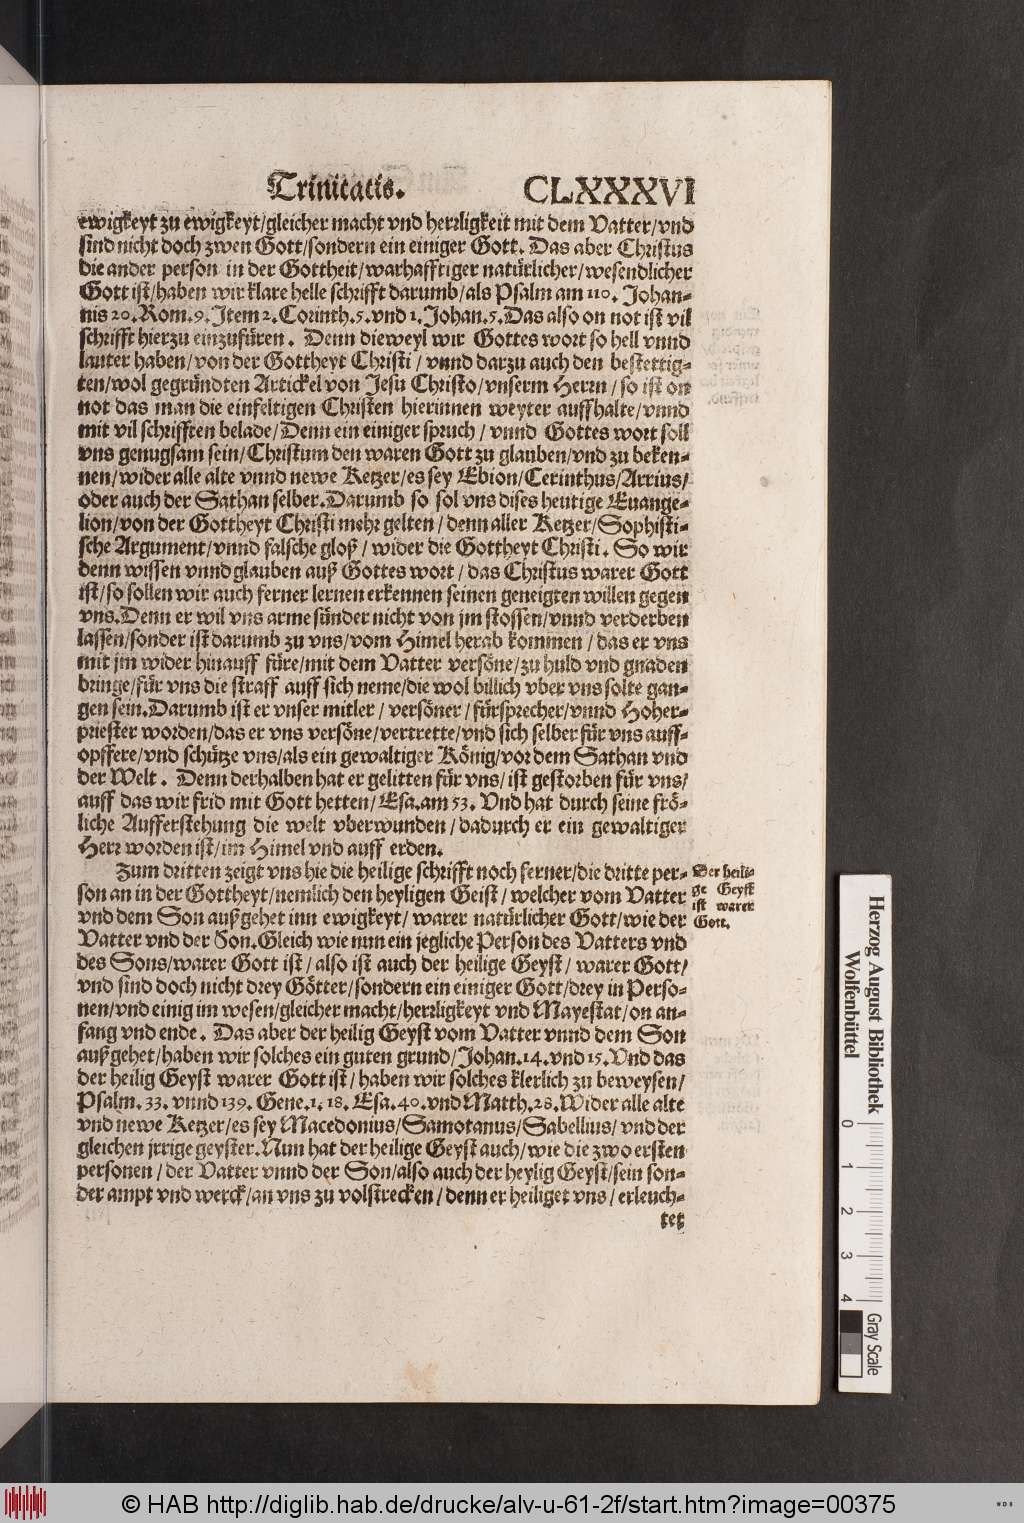 Trinitatis. CLXXXVI
ewigkeyt zu ewigkeyt/gleicher macht vnd herrligkeit mit dem Vatter/vnd
sind nicht doch zwen Gott/sondern ein einiger Gott. Das aber Christus
die ander person in der Gottheit/warhafftiger natürlicher/wesendlicher
Gott ist/haben wir klare helle schrifft darumb/als Psalm am 110. Johan-
nis 20. Rom. 9. Item 2. Corinth. 5. vnd 1. Johan. 5. Das also on not ist vil
schrifft hierzu einzufüren. Denn dieweyl wir Gottes wort so hell vnnd
lauter haben/von der Gottheyt Christi/vnnd darzu auch den bestettig-
ten/wol gegründten Artickel von Jesu Christo/vnserm Herrn/so ist on
not das man die einfeltigen Christen hierinnen weyter auffhalte/vnnd
mit vil schrifften belade/Denn ein einiger spruch/vnnd Gottes wort soll
vns genugsam sein/Christum den waren Gott zu glauben/vnd zu beken-
nen/wider alle alte vnnd newe Ketzer/es sey Ebion/Cerinthus/Arrius/
oder auch der Sathan selber. Darumb so sol vns dises heutige Euange-
lion/von der Gottheyt Christi mehr gelten/denn aller Ketzer/Sophisti-
sche Argument/vnnd falsche gloß/wider die Gottheyt Christi. So wir
denn wissen vnnd glauben auß Gottes wort/das Christus warer Gott
ist/so sollen wir auch ferner lernen erkennen seinen geneigten willen gegen
vns. Denn er wil vns arme sünder nicht von jm stossen/vnnd verderben
lassen/sonder ist darumb zu vns/vom Himel herab kommen/das er vns
mit jm wider hinauff füre/mit dem Vatter versöne/zu huld vnd gnaden
bringe/für vns die straff auff sich neme/die wol billich vber vns solte gan-
gen sein. Darumb ist er vnser mitler/versöner/fürsprecher/vnnd Hoher-
priester worden/das er vns versöne/vertrette/vnd sich selber für vns auff-
opffere/vnd schütze vns/als ein gewaltiger König/vor dem Sathan vnd
der Welt. Denn derhalben hat er gelitten für vns/ist gestorben für vns/
auff das wir frid mit Gott hetten/Esa. am 53. Vnd hat durch seine frö-
liche Aufferstehung die welt vberwunden/dadurch er ein gewaltiger
Herr worden ist/im Himel vnd auff erden.
Zum dritten zeigt vns hie die heilige schrifft noch ferner/die dritte per-
son an in der Gottheyt/nemlich den heyligen Geist/welcher vom Vatter
vnd dem Son außgehet inn ewigkeyt/warer natürlicher Gott/wie der
Vatter vnd der Son. Gleich wie nun ein jegliche Person des Vatters vnd
des Sons/warer Gott ist/also ist auch der heilige Geyst/warer Gott/
vnd sind doch nicht drey Götter/sondern ein einiger Gott/drey in Perso-
nen/vnd einig im wesen/gleicher macht/herrligkeyt vnd Mayestat/on an-
fang vnd ende. Das aber der heilig Geyst vom Vatter vnnd dem Son
außgehet/haben wir solches ein guten grund/Johan. 14. vnd 15. Vnd das
der heilig Geyst warer Gott ist/haben wir solches klerlich zu beweysen/
Psalm. 33. vnnd 139. Gene. 1. 18. Esa. 40. vnd Matth. 28. Wider alle alte
vnd newe Ketzer/es sey Macedonius/Samotanus/Sabellius/vnd der
gleichen jrrige geyster. Nun hat der heilige Geyst auch/wie die zwo ersten
personen/der Vatter vnnd der Son/also auch der heylig Geyst/sein son-
der ampt vnd werck/an vns zu volstrecken/denn er heiliget vns/erleuch-
tet
Der heili-
ge Geyst
ist warer
Gott.
Herzog August Bibliothek
Wolfenbüttel
0 1 2 3 4
Gray Scale
© HAB http://diglib.hab.de/drucke/alv-u-61-2f/start.htm?image=00375